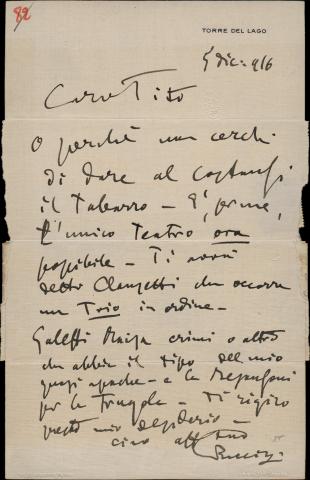 82
TORRE DEL LAGO
5 dic. 916
Caro Tito
O perchè non cerchi
di dare al Costanzi
il Tabarro - È, forse,
l'unico Teatro ora
possibile - Ti avrà
detto Clausetti che occorre
un Trio in ordine -
Galeffi Raisa Crimi o altro
che abbia il tipo del mio
quasi apache - e la
per la Frugola - Ti rigiro
questo mio desiderio -
ciao aff tuo
Puccini